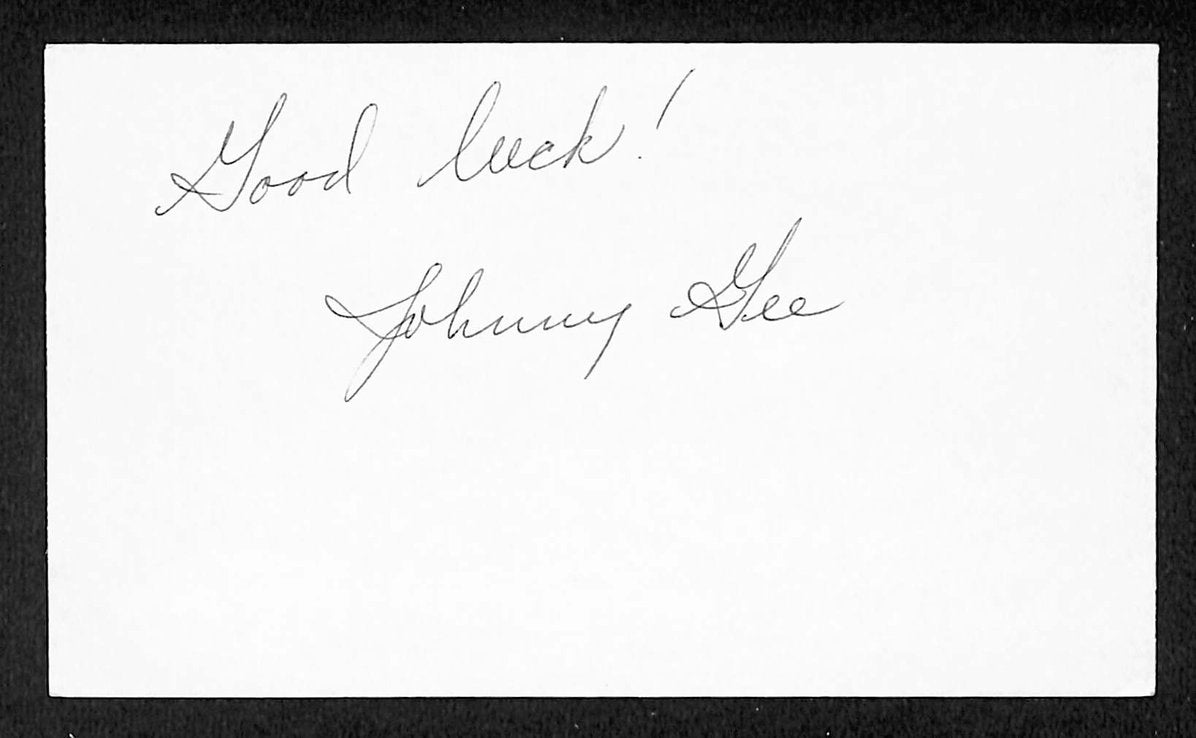 Good luck!
Johnny Gee